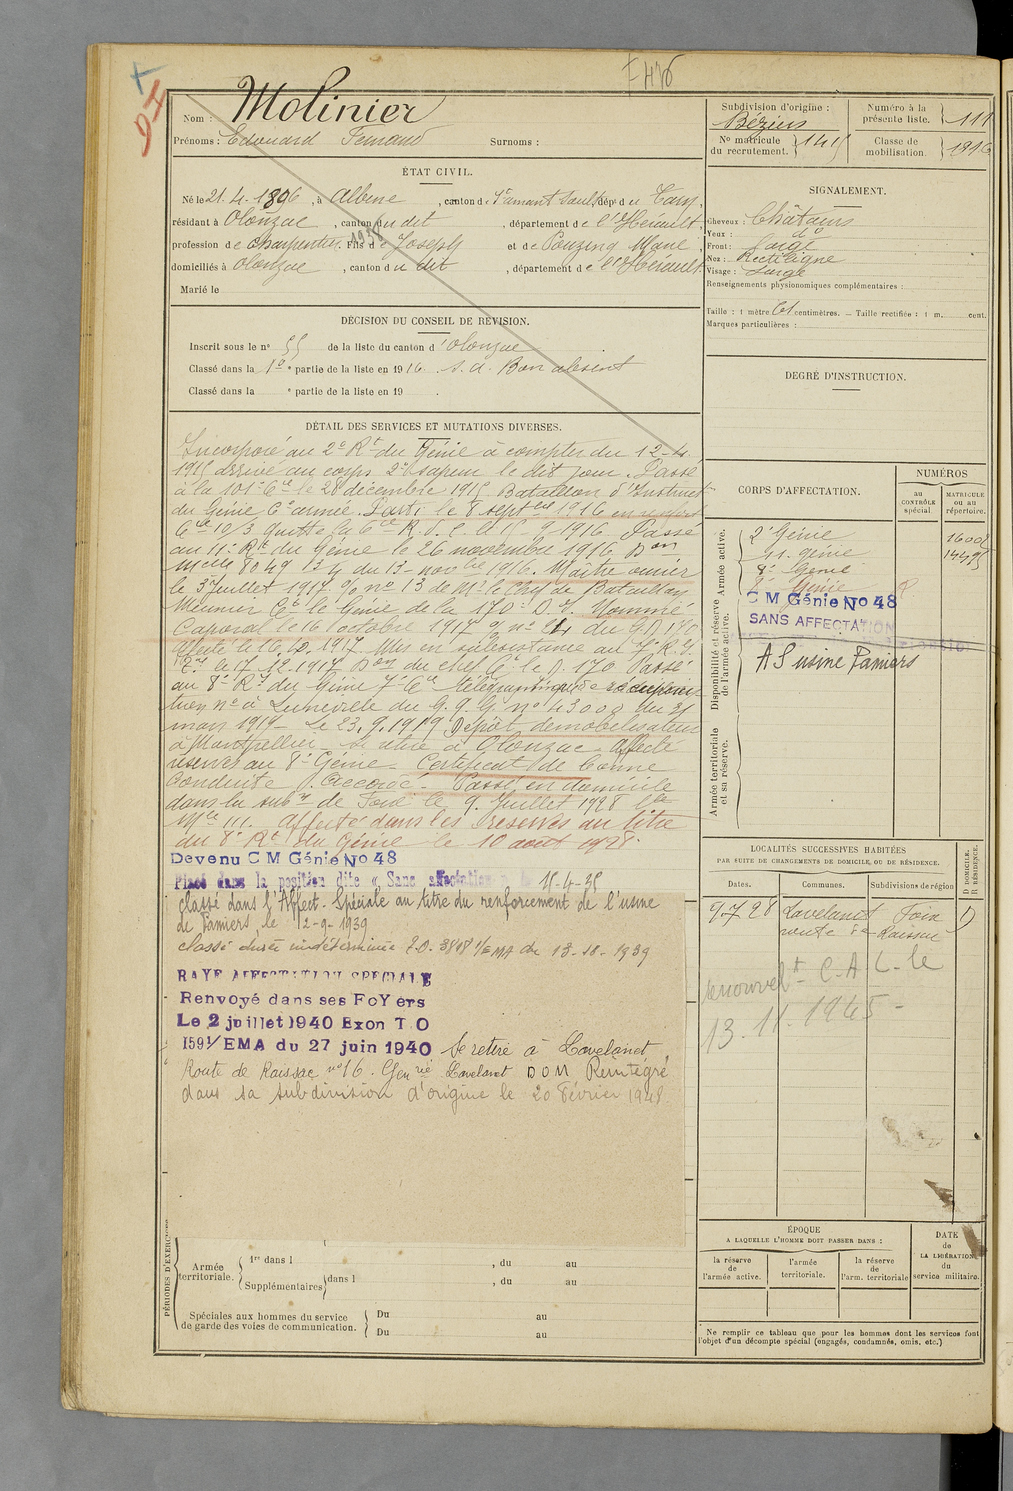 F 476
Nom : Molinier
Prénoms : Edouard Fernand Surnoms :
ÉTAT CIVIL.
Né le 21. 4. 1896, à Albine, canton de St amant Soult, dépt du Tarn,
résidant à Olonzac, canton du dit, département de l'Hérault,
profession de charpentier, fils de Joseph et de Pouzenq Marie,
domiciliés à Olonzac, canton du dit, département de l'Hérault
Marié le
DÉCISION DU CONSEIL DE RÉVISION.
Inscrit sous le n° 55 de la liste du canton d'Olonzac
Classé dans la 1e partie de la liste en 1916. s. a. Bon absent
Classé dans la e partie de la liste en 19 .
DÉTAIL DES SERVICES ET MUTATIONS DIVERSES.
Incorporé au 2e Rt du Génie à compter du 12-4.
1915 arrivé au corps 2e sapeur le dit jour. Passé
à la 101e Cie le 28 décembre 1915 Bataillon d'Instruct
du Génie 6e armée. Parti le 8 septbre 1916 en renfort
Cie 10/3 quitte la Cie le 15-9-1916. Passé
au 11e Rt du Génie le 26 novembre 1916 Don
Melle 8049 13/4 du 13-novbre 1916. Maître ouvrier
le 3 Juillet 1917. O/ no 13 de Mr le Chef de Bataillon
Meunier Ct le Génie de la 170e D. I. Nommé
Caporal le 16 octobre 1917 O/ no 24 du GD 170
affecté le 16. 10. 1917. Mis en subsistance au 7. R. G.
le 17. 12. 1917 Don du chef Ct le D. 170 Passé
au 8e Rt du Génie 7e Cie télégraphiques
no à Luneville du G. Q. G. no 43008 du 31
mars 1919. Le 23. 9. 1919 Dépôt démobilisateur
à Montpellier se retire à Olonzac. Affecté
réserve au 8e Génie. Certificat de bonne
Conduite "Accordé". Passé en domicile
dans la subon de Foix le 9. Juillet 1928
Mle 111. Affecté dans les réserves au titre
du 8e Rt du Génie le 10 août 1928.
Devenu C M Génie No 48
Placé dans la position dite « Sans affectation » le 15-4-35
classé dans l'Affect. Spéciale au titre du renforcement de l'usine
de Pamiers le 12-9-1939
classé durée indéterminée T.O. 3808 1/EMA du 13-10-1939
RAYE AFFECTATION SPECIALE
Renvoyé dans ses FoYers
Le 2 juillet 1940 Exon T O
1591/EMA du 27 juin 1940 Se retire à Lavelanet,
Route de Raissac no 16. Genrie Lavelanet DOM Réintégré
dans sa subdivision d'origine le 20 Février 1948.
PÉRIODES D'EXERCICES
Armée territoriale. 1re dans l , du au
Supplémentaires dans l , du au
Spéciales aux hommes du service de garde des voies de communication. Du au
Du au
Subdivision d'origine : Béziers
N° matricule du recrutement. 1415
Numéro à la présente liste. 111
Classe de mobilisation. 1916
SIGNALEMENT.
Cheveux : Châtains
Yeux : do
Front : large
Nez : Rectiligne
Visage : Large
Renseignements physionomiques complémentaires :
Taille : 1 mètre 61 centimètres. — Taille rectifiée : 1 m. cent.
Marques particulières :
DEGRÉ D'INSTRUCTION.
CORPS D'AFFECTATION.
NUMÉROS
au CONTRÔLE spécial.
MATRICULE ou au répertoire.
Armée active.
2e Génie
11. génie
8e Génie
8e Génie
Disponibilité et réserve de l'armée active.
C M Génie No 48
SANS AFFECTATION
A S usine Pamiers
Armée territoriale et sa réserve.
LOCALITÉS SUCCESSIVES HABITÉES
PAR SUITE DE CHANGEMENTS DE DOMICILE OU DE RÉSIDENCE.
Dates. Communes. Subdivisions de région D DOMICILE. R RÉSIDENCE.
9 7 28 Lavelanet Foix D
route de Raissac
renouvelt C. A. L. le
13. 11. 1945 -
ÉPOQUE
A LAQUELLE L'HOMME DOIT PASSER DANS :
la réserve de l'armée active.
l'armée territoriale.
la réserve de l'arm. territoriale
DATE de LA LIBÉRATION du service militaire.
Ne remplir ce tableau que pour les hommes dont les services font
l'objet d'un décompte spécial (engagés, condamnés, omis, etc.)